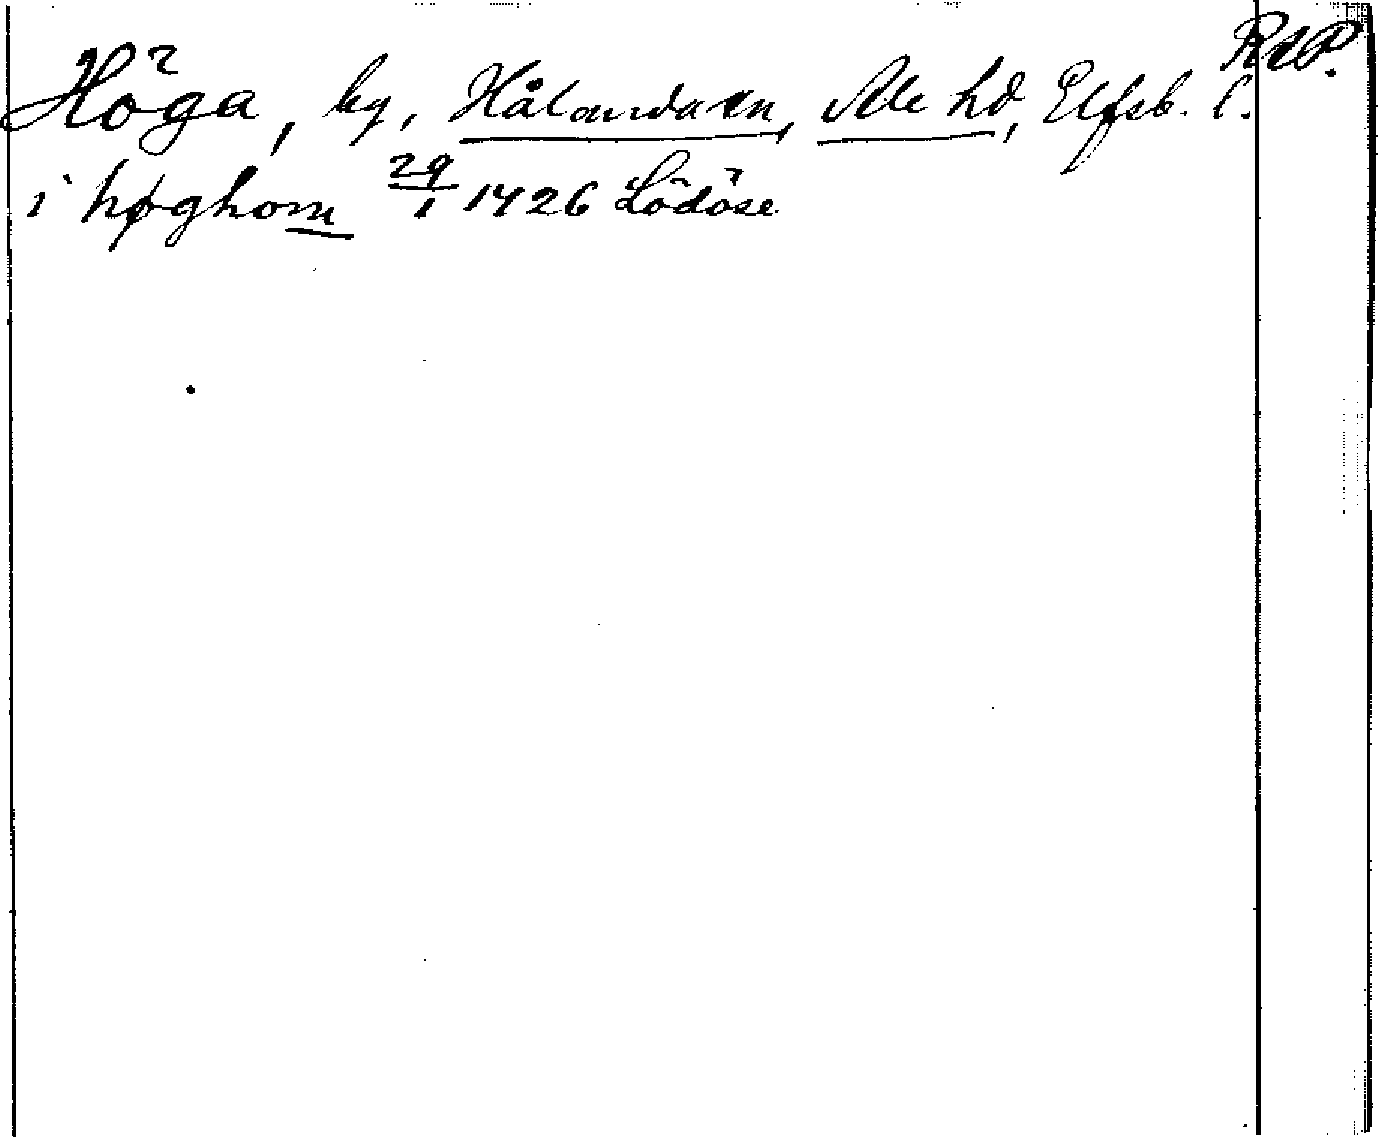 RAP.
Höga, by, Hålanda sn, Ale hd, Elfsb. l.
i høghom 29/1 1426 Lödöse